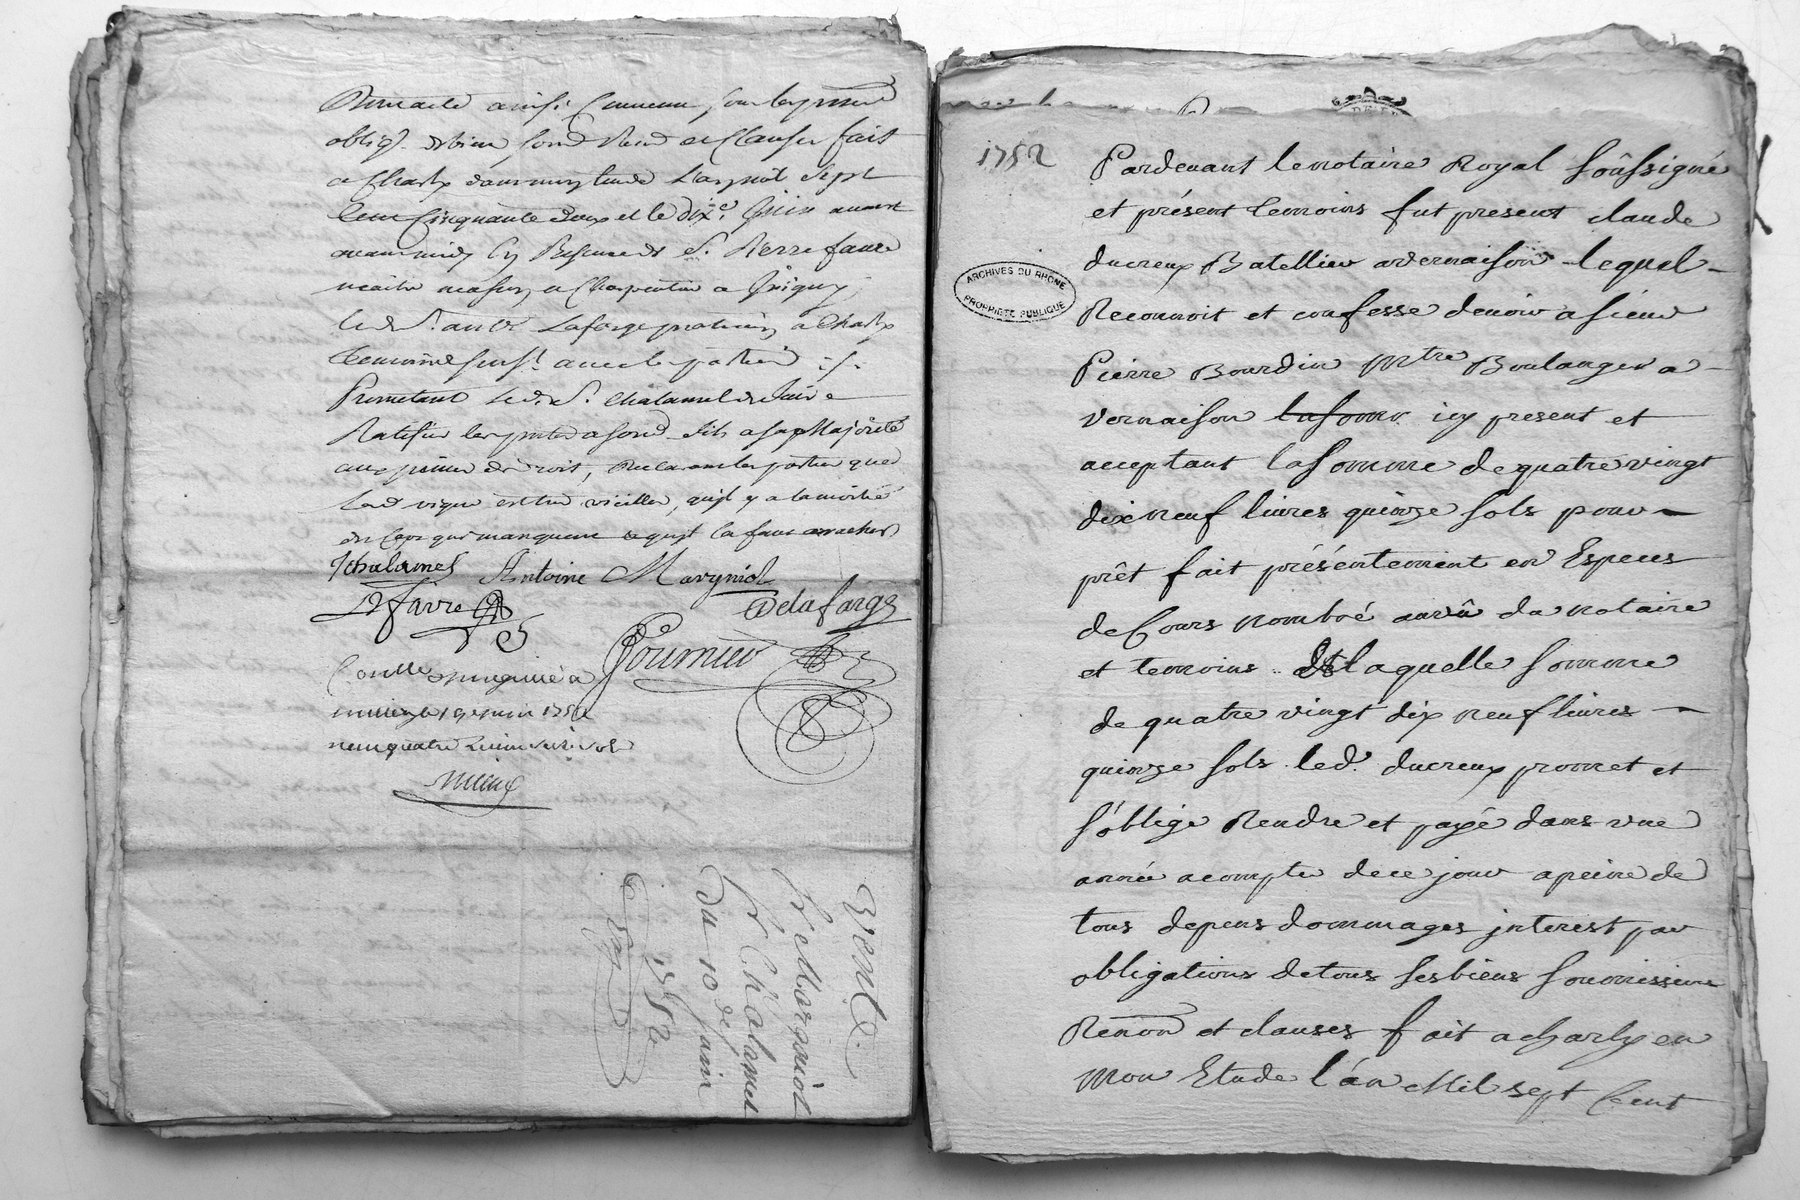 obligõn de bien, soumõn Renõn et Clauses fait
a Charly dans mon Etude L'an mil Sept
Cent Cinquante deux et le dixe. Juin avant
avant midy En Presence de Sr. Pierre faure
maitre masson et Charpentier a Grigny,
le d. Sr. Laforge praticien a Charly
temoins sousst. avec les parties ./.
Promettant led. Sr. Chalamel de faire
Ratifier les ptes a son d. fils a sa Majorité
les parties que
lad vigne est tres vieille, qu'il y a la moitié
des Ceps qui manquent et qu'il la faut arracher
JChalamel Antoine Marguiol
PFavre Delaforge
Fournier
Conttrollé a
millery le 19e juin 1752
Vente
pr Chalamel
Du 10 de Juin
1752
1752
Pardevant le notaire Royal Soussigné
et présent temoins fut present claude
ducreux Batellier a vernaison lequel
Reconnoit et confesse devoir a sieur
Pierre Bourdin Mtre Boulanger a
vernaison la somme icy present et
acceptant la somme de quatre vingt
dix neuf livres quinze sols pour
prêt fait présentement en Especes
de Cours nombré au vû du notaire
et temoins. laquelle somme
de quatre vingt dix neuf livres
quinze sols led. ducreux promet et
s'oblige Rendre et payé dans une
année a compter de ce jour a peine de
tous depens dommages interest par
obligations de tous ses biens soumissions
Renõn et clauses fait a charly en
Mon Etude l'án Mil sept Cent
ARCHIVES DU RHONE
PROPRIÉTÉ PUBLIQUE